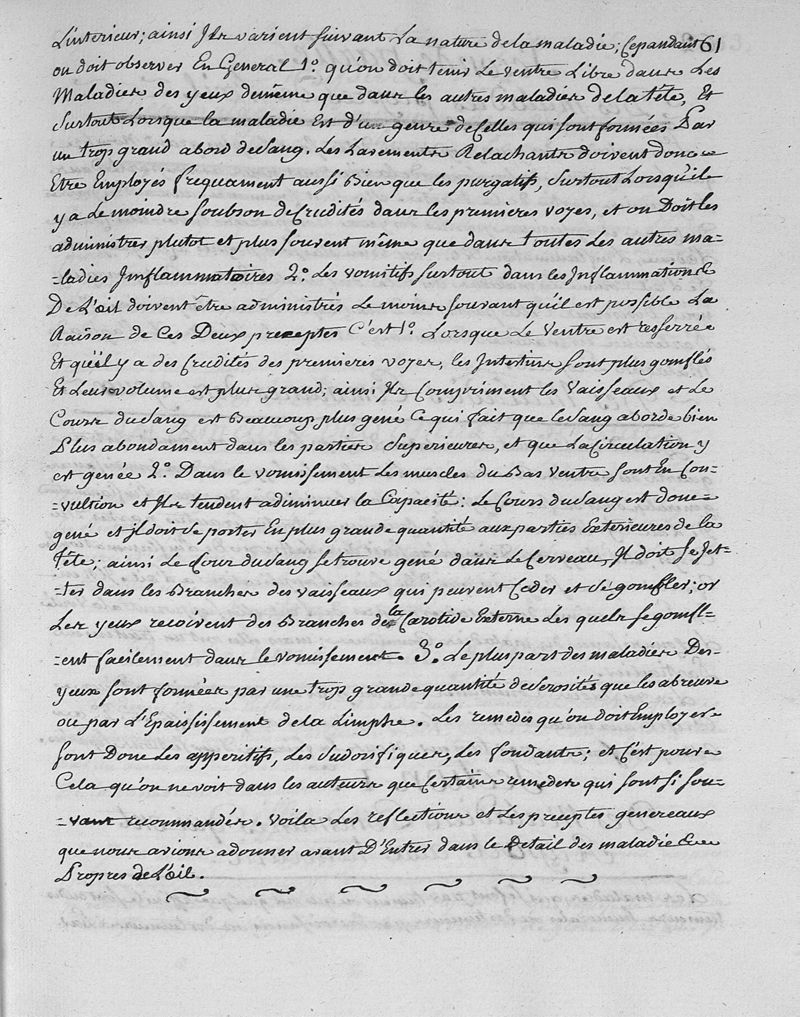 L'interieur; ainsi Ils varient suivant La nature de la maladie; Cepandant 61
on doit observer En General 1.º qu'on doit tenir Le Ventre Libre dans Les
Maladies des yeux de même que dans les autres maladies de la tête, Et
Surtout Lorsque la maladie Est d'un genre de Celles qui sont formées Par
un trop grand abord de Sang. Les Lavements Relachants doivent donc
Etre Employés frequament aussi Bien que les purgatifs, Surtout Lorsqu'il
y a Le moindre Soubson de Crudités dans les premieres voyes, et on Doit les
administrer plutot et plus souvent même que dans toutes Les autres ma-
-ladies Inflammatoires 2.º Les vomitifs surtout dans les Inflammations
De L'œil doivent être administrés Le moins souvant qu'il est possible La
Raison de Ces Deux preceptes C'est 1.º Lorsque Le Ventre est resserrée
Et qu'il y a des Crudités des premieres voyes, les Intestins sont plus gonflés
Et Leur volume est plus grand; ainsi Ils Compriment les Vaisseaux et Le
Cours du Sang est Beaucoup plus gené Ce qui fait que le Sang aborde bien
Plus abondament dans les parties Superieures, et que La Circulation y
est genée 2.º Dans le vomissement Les muscles du Bas Ventre sont En Con-
-vultion et Ils tendent a diminuer la Capacité: Le Cours du Sang est donc
gené et Il doit se porter En plus grande quantité aux parties Exterieures de la
Tête; ainsi Le Cour du Sang se trouve gené dans Le Cerveau, Il doit se Jet-
-ter dans les Branches des vaisseaux qui peuvent Ceder et se gonfler; or
Les yeux recoivent des Branches de la Carotide Externe Les quels se gonfl-
-ent facilement dans le vomissement. 3.º Le plus part des maladies Des
yeux sont formées par une trop grande quantité de Serosités que les abreuve
ou par L'Epaississement de la Limphe. Les remedes qu'on doit Employer
sont Donc Les apperitifs, Les Sudorifiques, Les fondants; et C'est pour
Cela qu'on ne voit dans les auteurs que Certains remedes qui sont si sou-
-vant recommandés. Voila Les reflections et Les preceptes genereaux
que nous avions a donner avant D'Entrer dans le Detail des maladies
Propres de L'œil.